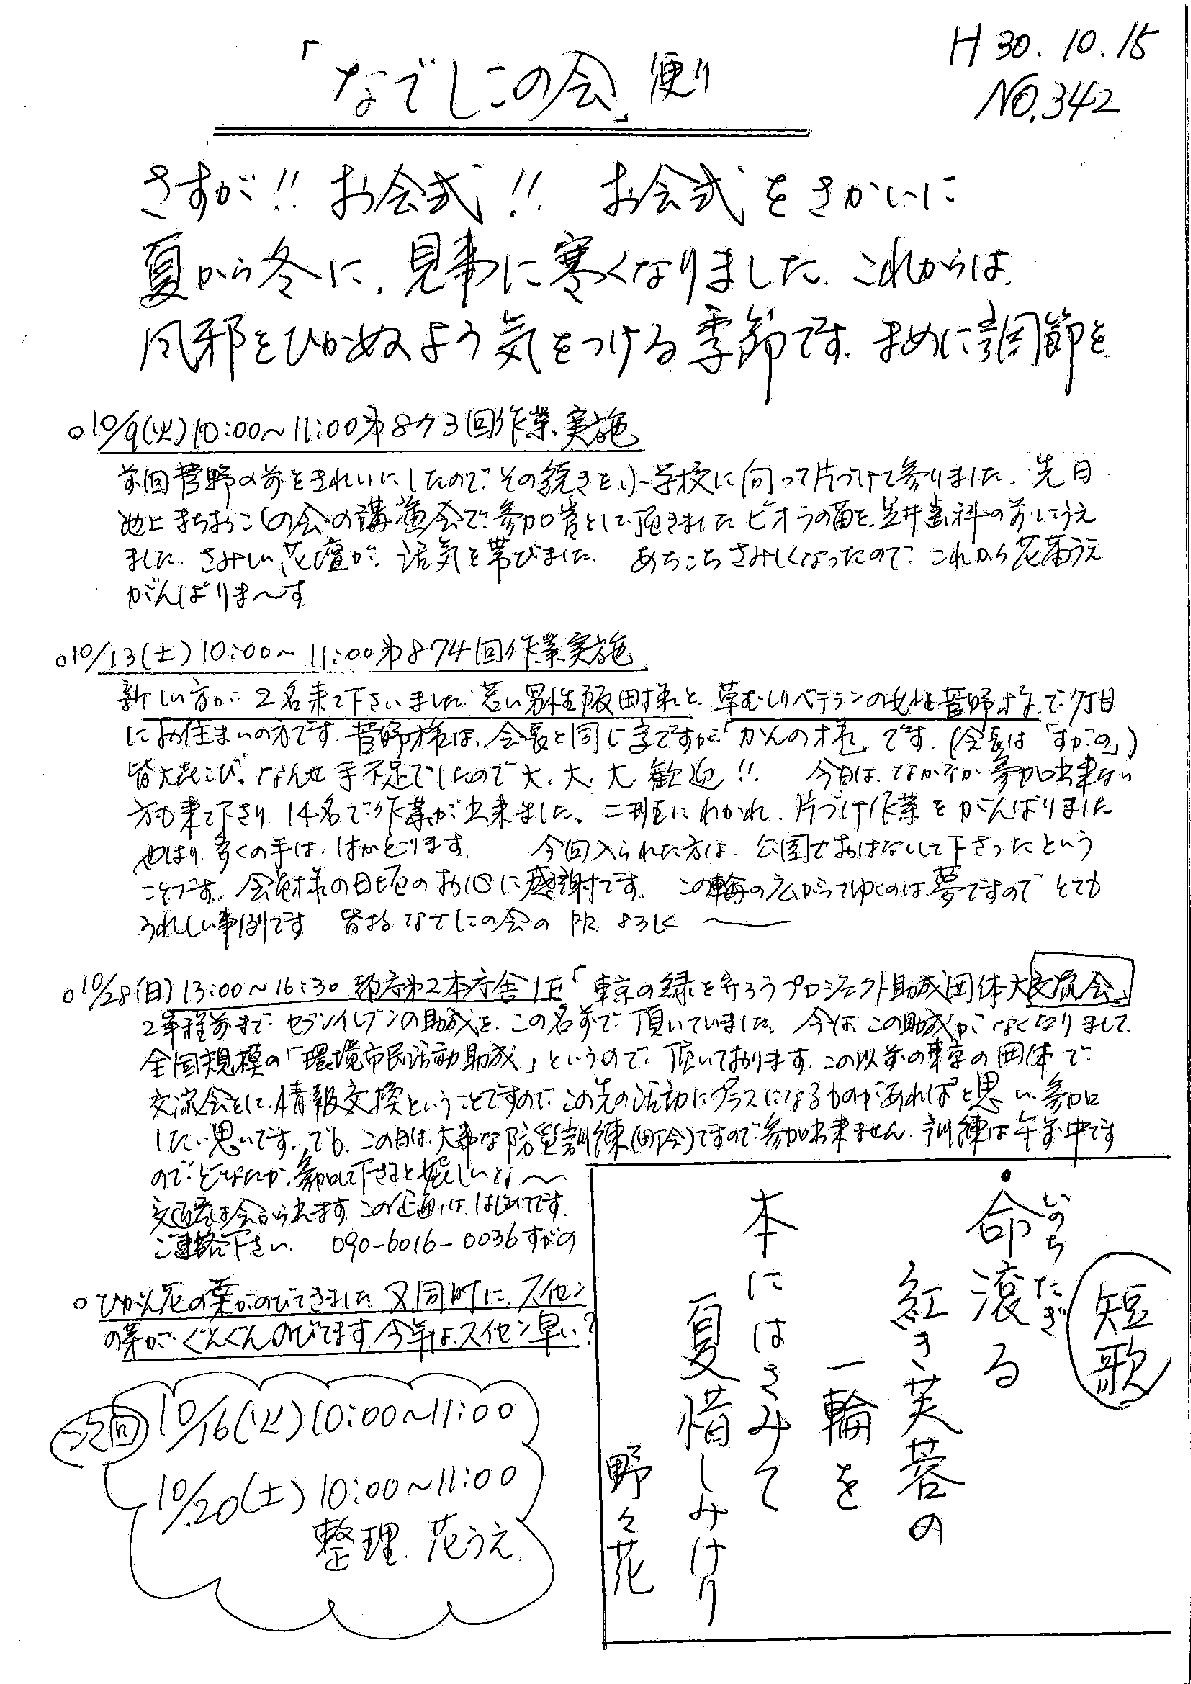 H30.10.15
NO.342
「なでしこの会」便り
さすが!! お会式!! お会式をさかいに
夏から冬に、見事に寒くなりました。これからは、
風邪をひかぬよう気をつける季節です。まめに調節を
○10/9(火)10:00〜11:00第873回作業実施
前回菅野の前をきれいにしたので、その続きを小学校に向って片づけて参りました。先日
池上まちおこしの会の講演会で参加賞として頂きましたビオラの苗を、笠井歯科の前にうえ
ました。さみしい花壇が、活気を帯びました。 あちこちさみしくなったので、これから花苗うえ
がんばりま〜す
○10/13(土)10:00〜11:00第874回作業実施
新しい方が2名来て下さいました。若い男性飯田様と、草むしりベテランの女性菅野様で、7丁目
にお住まいの方です。菅野様は、会長と同じ字ですが「かんの様」です。(会長は「すがの」)
皆大喜こび。なんせ手不足でしたので大、大、大歓迎!! 今日は、なかなか参加出来ない
方も来て下さり14名で作業が出来ました。二班にわかれ、片づけ作業をがんばりました
やはり多くの手は、はかどります。 今回入られた方は、公園でおはなしして下さったという
ことです。会員様の日頃のお心に感謝です。この輪の広がってゆくのは夢ですので とても
うれしい事例です 皆さまなでしこの会のPR よろしく〜
○10/28(日)13:00〜16:30 都庁第2本庁舎1F「東京の緑を守ろうプロジェクト助成団体大交流会」
2年程前まで、セブンイレブンの助成を、この名前で頂いていました。今は、この助成がなくなりまして、
全国規模の「環境市民活動助成」というので、頂いております。この以前の東京の団体で
交流会をし、情報交換ということですので、この先の活動にプラスになるものがあればと思い参加
したい思いです。でも、この日は、大事な防災訓練(町会)ですので参加出来ません。訓練は午前中です
ので、どなたか、参加して下さると嬉しいな〜
交通費は会から出ます。この企画は、はじめてです。
ご連絡下さい。 090-6016-0036すがの
○ひがん花の葉がのびてきました 又同時に、スイセン
の芽が、ぐんぐんのびてます。今年は、スイセン早い?
次回
10/16(火)10:00〜11:00
10/20(土)10:00〜11:00
整理、花うえ
短歌
命滾る
いのちたぎ
紅き芙蓉の
一輪を
本にはさみて
夏惜しみけり
野々花